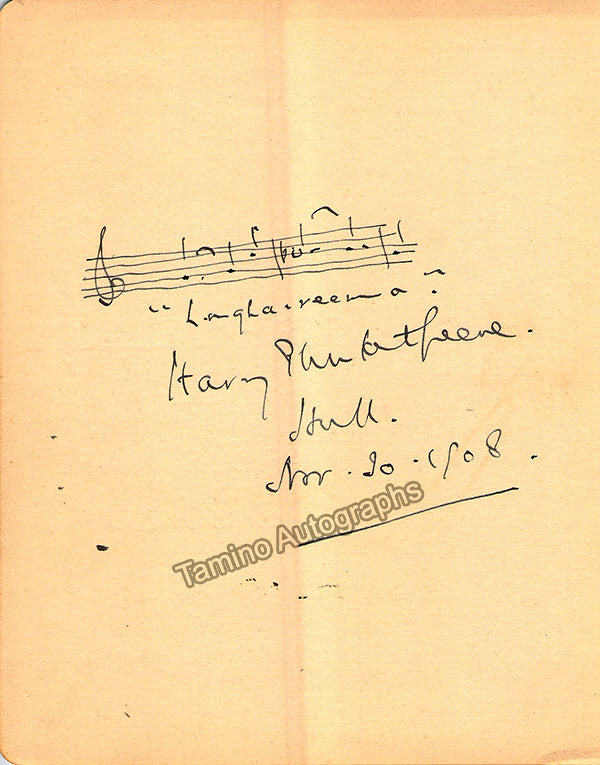 Harry Plunket Greene.
Hull.
Nov. 20. 1908.
Tamino Autographs